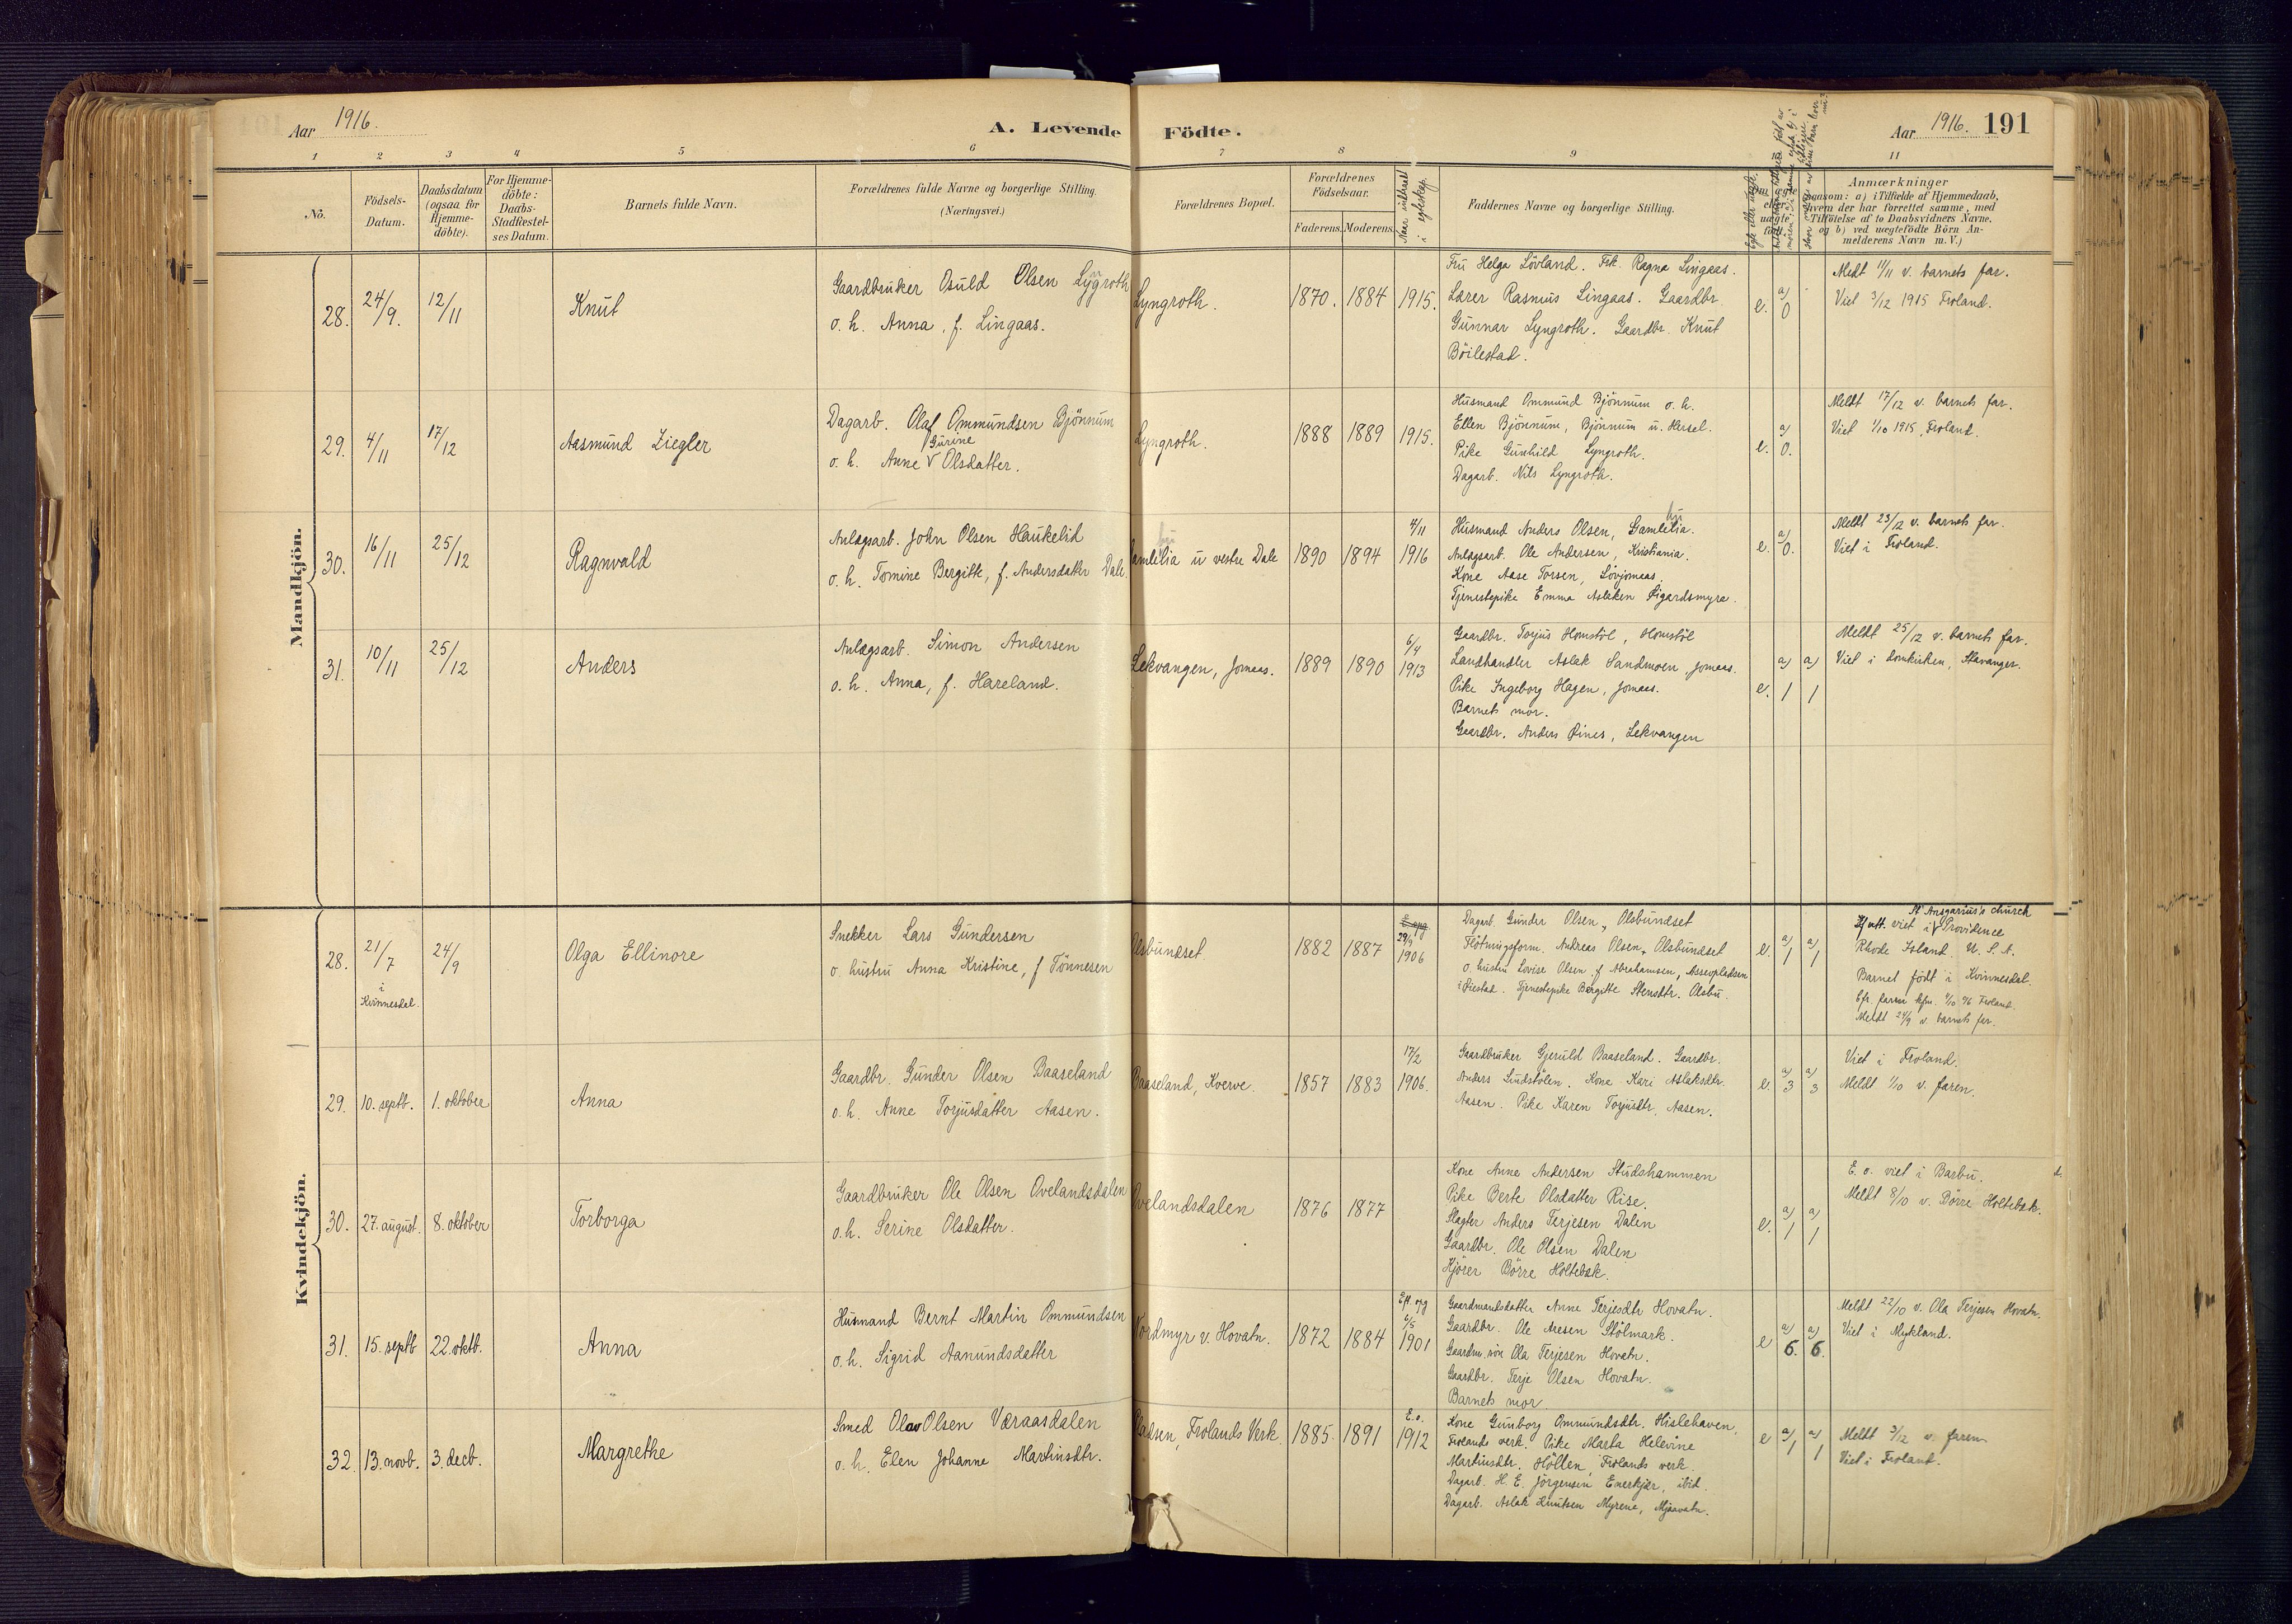 Aar 1916.
A. Levende Födte.
Aar 1916. 191
1 2 3 4 5 6 7 8 9 11
No.
Födsels-
Datum.
Daabsdatum
(ogsaa for
Hjemme-
döbte).
For Hjemme-
döbte:
Daabs-
Stadfæstel-
ses Datum.
Barnets fulde Navn.
Forældrenes fulde Navne og borgerlige Stilling.
(Næringsvei.)
Forældrenes Bopæl.
Forældrenes
Födselsaar.
Faderens. Moderens.
Naar indtraadt
i egteskap.
Faddernes Navne og borgerlige Stilling.
Anmærkninger
saasom: a) i Tilfælde af Hjemmedaab,
hvem der har forrettet samme, med
Tilföielse af to Daabsvidners Navne,
og b) ved uægtefödte Börn An-
melderens Navn m. V.)
Mandkjön.
28. 24/9. 12/11
Knut
Gaardbruker Osuld Olsen Lyngroth
o. h. Anna, f. Lingaas.
Lyngroth.
1870. 1884 1915.
Fru Helga Lövland. Frk. Ragna Lingaas.
Lærer Rasmus Lingaas. Gaardbr.
Gunnar Lyngroth. Gaardbr. Knut
Böilestad.
e. a) 0
Meldt 11/11 v. barnets far.
Viet 3/12 1915 Froland.
29. 4/11 17/12
Aasmund Ziegler
Dagarb. Olaf Ommundsen Bjönnum
Gurine
o. h. Anne V Olsdatter.
Lyngroth.
1888 1889 1915.
Husmand Ommund Bjönnum o. h.
Ellen Bjönnum, Bjönnum u. Hersel.
Pike Gunhild Lyngroth.
Dagarb. Nils Lyngroth.
e. a) 0.
Meldt 17/12 v. barnets far.
Viet 1/10 1915, Froland.
30. 16/11 25/12
Ragnvald
Anlægsarb. John Olsen Haukelid
o. h. Tomine Bergitte, f. Andersdatter Dale.
Gamlelia u vestre Dale
1890 1894
4/11
1916
Husmand Anders Olsen, Gamlelia.
Anlægsarb. Ole Andersen, Kristiania.
Kone Aase Torsen, Lövjomaas.
Tjenestepike Emma Aslaksen Sigardsmyra.
e. a) 0.
Meldt 23/12 v. barnets far.
Viet i Froland.
31. 10/11 25/12
Anders
Anlægsarb. Simon Andersen
o. h. Anna, f. Hareland.
Lekvangen, Jomaas.
1889 1890
6/4
1913
Gaardbr. Torjus Homstöl, Homstöl
Landhandler Aslak Sandmoen, Jomaas.
Pike Ingeborg Hagen, Jomaas.
Barnets mor.
Gaardbr. Anders Rines, Lekvangen
e. a) 1 a) 1
Meldt 25/12 v. barnets far.
Viet i domkirken, Stavanger.
Kvindekjön.
28. 21/7 24/9
i
Kvinnesdal.
Olga Ellinore
Snekker Lars Gundersen
o. hustru Anna Kristine, f Tönnesen
Olsbundset.
1882 1887
29/9
1906
Dagarb. Gunder Olsen, Olsbundset
Flötningsform. Andreas Olsen, Olsbundset
o. hustru Lovise Olsen f. Abrahamsen,
Tjenestepike Bergitte Stensdtr. Olsbu.
e. a) 1 a) 1
St Ansgarius's church
viet i V Providence
Rhode Island. U. S. A.
Barnet födt i Kvinnesdal.
Meldt 24/9 v. barnets far.
29. 10. septb. 1. oktober
Anna
Gaardbr. Gunder Olsen Baaseland
o. h. Anne Torjusdatter Aasen.
Baaseland, Kverve.
1857 1883
17/2
1906.
Gaardbruker Gjeruld Baaseland. Gaardbr.
Anders Lindstölen. Kone Kari Aslaksdtr.
Aasen. Pike Karen Torjusdtr. Aasen.
e. a) 3 a) 3
Viet i Froland.
Meldt 1/10 v. faren.
30. 27. august. 8. oktober
Torborga
Gaardbruker Ole Olsen Ovelandsdalen
o. h. Serine Olsdatter.
Ovelandsdalen
1876 1877
Kone Anne Andersen Studshammen
Pike Berte Olsdatter Rise.
Slagter Anders Terjesen Dalen
Gaardbr. Ole Olsen Dalen
Kjörer Börre Holtebæk.
e. a) 1 a) 1
E. o. viet i Barbu.
Meldt 8/10 v. Börre Holtebæk.
31. 15. septb 22. oktb.
Anna
Husmand Bernt Martin Ommundsen
o. h. Sigrid Aanundsdatter
Nordmyr v. Hovatn.
1872 1884
Eft. opg
1901
Gaardmandsdatter Anne Terjesdtr Hovatn.
Gaardbr. Ole Aresen Stölmark.
Gaardm. sön Ola Terjesen Hovatn.
Gaardbr. Terje Olsen Hovatn.
Barnets mor.
e a) 6. a) 6.
Meldt 22/10 v. Ola Terjesen Hovatn.
Viet i Mykland.
32. 13. novb. 3. decb.
Margrethe
Smed Olav Olsen Væraasdalen
o. h. Elen Johanne Martinsdtr.
Pladsen, Frolands Verk.
1885. 1891
E. o.
1912
Kone Gunborg Ommundsdtr. Hislehaven,
Frolands verk. Pike Marta Helevine
Martinsdtr. Höllen, Frolands verk.
Dagarb. H. E. Jörgensen Enerkjær, ibid.
Dagarb. Aslak Knutsen Myrene, Mjaavatn.
e a) 1 a) 1
Meldt 3/12 v. faren
Viet i Froland.